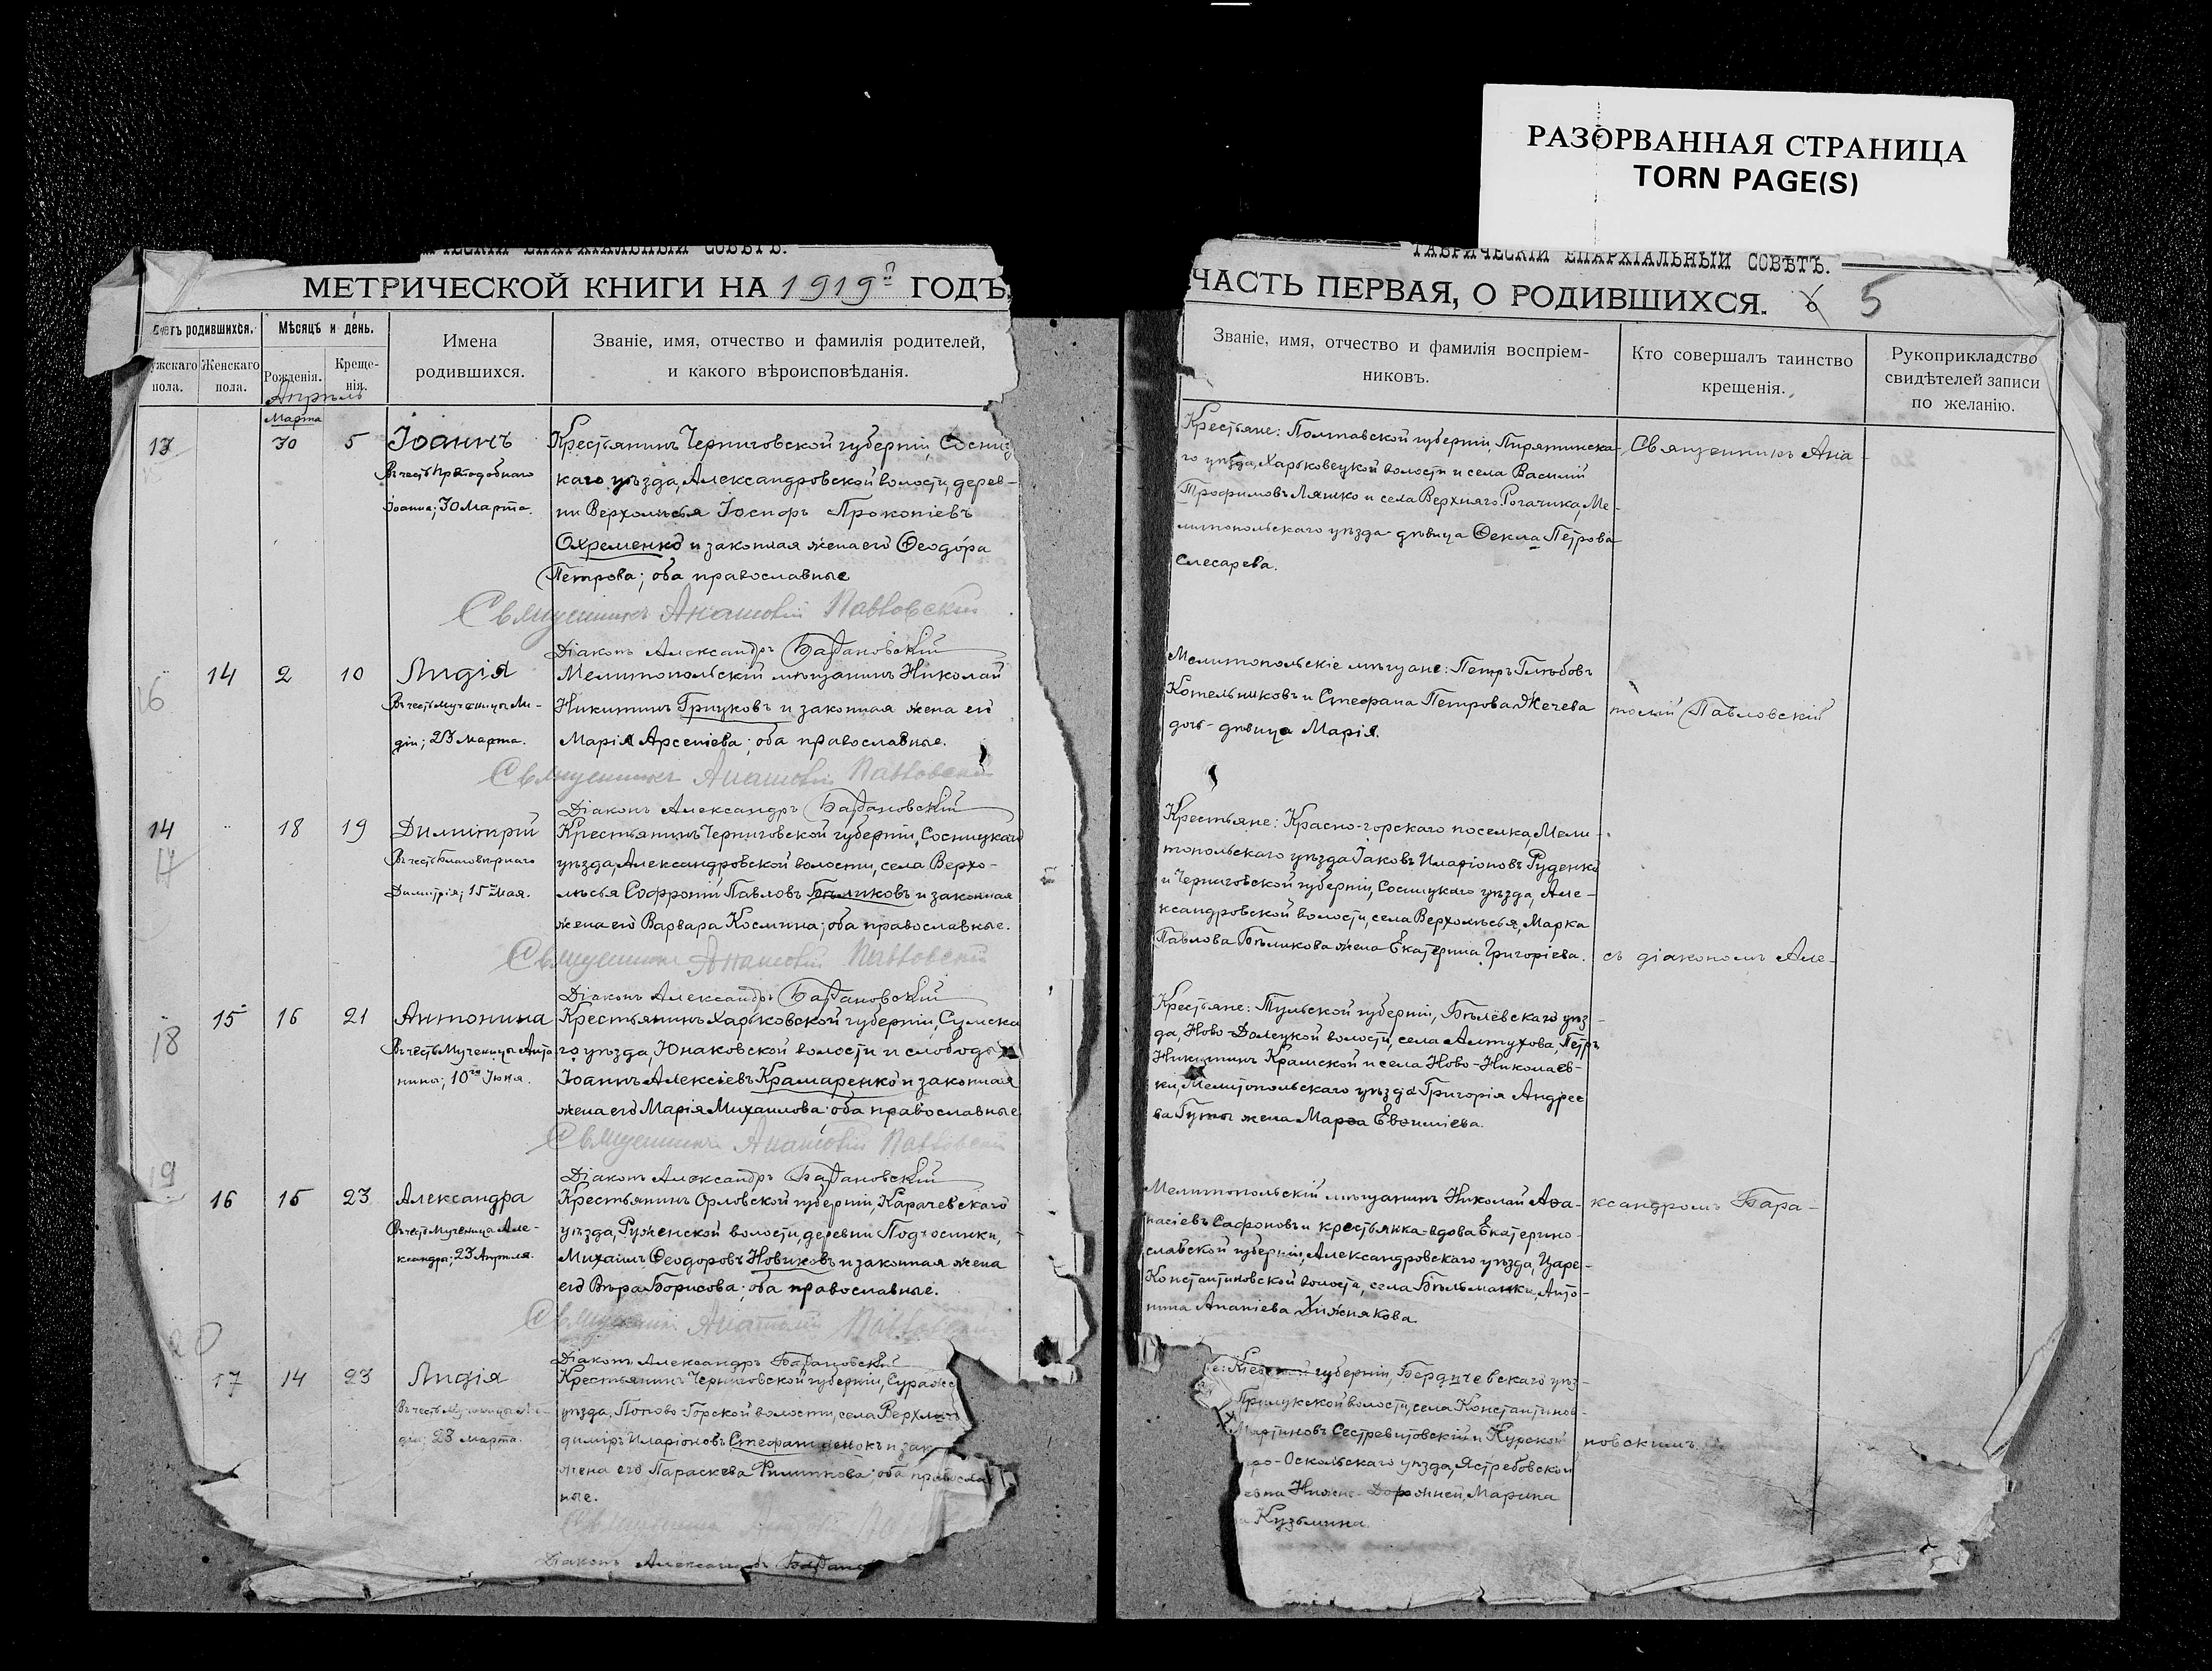 РАЗОРВАННАЯ СТРАНИЦА
TORN PAGE(S)
ЕПАРХІАЛЬНЫЙ СОВѢТЪ.
МЕТРИЧЕСКОЙ КНИГИ НА 1919й ГОДЪ,
Счетъ родившихся.
Мѣсяцъ и день.
Имена
родившихся.
Званіе, имя, отчество и фамилія родителей,
и какого вѣроисповѣданія.
ужскаго
пола.
Женскаго
пола.
Рожденія.
Креще-
нія.
Апрѣль
Марта
13 30 5 Іоаннъ Крестьянинъ Черниговской губерніи, Сосниц
Въ честь Преподобнаго каго уѣзда, Александровской волости, дерев-
Іоанна; 30 Марта. ни Верхолѣсья Іосифъ Прокопіевъ
Охременко и законная жена его Ѳеодора
Петрова; оба православные
Священникъ Анатолій Павловскій
Діаконъ Александръ Барановскій
16 14 2 10 Лидія Мелитопольскій мѣщанинъ Николай
Въ честь Мученицы Ли- Никитинъ Грицковъ и законная жена его
діи; 23 Марта. Марія Арсеніева; оба православные.
Священникъ Анатолій Павловскій
Діаконъ Александръ Барановскій
14 18 19 Димитрій Крестьянинъ Черниговской губерніи, Сосницкаго
17 Въ честь Благовѣрнаго уѣзда, Александровской волости, села Верхо-
Димитрія; 15го Мая. лѣсья Софроній Павловъ Бѣликовъ и законная
жена его Варвара Космина; оба православные.
Священникъ Анатолій Павловскій
Діаконъ Александръ Барановскій
15 16 21 Антонина Крестьянинъ Харьковской губерніи, Сумска
18 Въ честь Мученицы Анто го уѣзда, Юнаковской волости и слободы
нины; 10го Іюня. Іоаннъ Алексіевъ Крамаренко и законная
жена его Марія Михаилова; оба православные
Священникъ Анатолій Павловскій
19 Діаконъ Александръ Барановскій
16 15 23 Александра Крестьянинъ Орловской губерніи, Карачевскаго
Въ честь Мученицы Але- уѣзда, Руженской волости, деревни Подсосинки,
ксандры; 23 Апрѣля. Михаилъ Ѳеодоровъ Новиковъ и законная жена
его Вѣра Борисова; оба православные.
Священникъ Анатолій Павловскій
20 Діаконъ Александръ Барановскій
17 14 23 Лидія Крестьянинъ Черниговской губерніи, Сураж
Въ честь Мученицы Ли уѣзда, Попово-Горской волости, села
діи; 23 Марта. димiръ Иларіоновъ и зак
жена его Параскева Филиппова; оба православ
ные.
Діаконъ Александръ Баран
ТАВРИЧЕСКІЙ ЕПАРХІАЛЬНЫЙ СОВѢТЪ.
ЧАСТЬ ПЕРВАЯ, О РОДИВШИХСЯ. 5
Званіе, имя, отчество и фамилія воспріем-
никовъ.
Кто совершалъ таинство
крещенія.
Рукоприкладство
свидѣтелей записи
по желанію.
Крестьяне: Полтавской губерніи, Пирятинска- Священникъ Ана-
го уѣзда, Харьковецкой волости и села Василій
Трофимовъ Ляшко и села Верхняго Рогачика, Ме-
литопольскаго уѣзда дѣвица Ѳекла Петрова
Слесарева.
Мелитопольскіе мѣщане: Петръ Глѣбовъ
Котельниковъ и Стефана Петрова Жечева толій Павловскій
дочь-дѣвица Марія.
Крестьяне: Красно-горскаго поселка, Мели-
топольскаго уѣзда Іаковъ Иларіоновъ Руденко
и Черниговской губерніи, Сосницкаго уѣзда, Але-
ксандровской волости, села Верхолѣсья, Марка
Павлова Бѣликова жена Екатерина Григоріева. съ діакономъ Але-
Крестьяне: Тульской губерніи, Бѣлёвскаго уѣз-
да, Ново-Долецкой волости, села Алтухова, Петръ
Никитинъ Крамской и села Ново-Николаев-
ки, Мелитопольскаго уѣзда Григорія Андрее
ва Гуты жена Марѳа Евѳиміева.
Мелитопольскій мѣщанинъ Николай Аѳа- ксандромъ Бара-
насіевъ Сафоновъ и крестьянка-вдова Екатерино-
славской губерніи, Александровскаго уѣзда, Царе-
Константиновской волости, села Бѣльманки, Анто-
нина Ананіева Хижнякова.
е: Кіевской губерніи, Бердичевскаго уѣз-
Прилукской волости, села Константинов-
Мартиновъ Сестревитовскій и Курской новскимъ.
ро-Оскольскаго уѣзда, Ястребовской
евна Нижне-Дорожней, Марина
Кузьмина